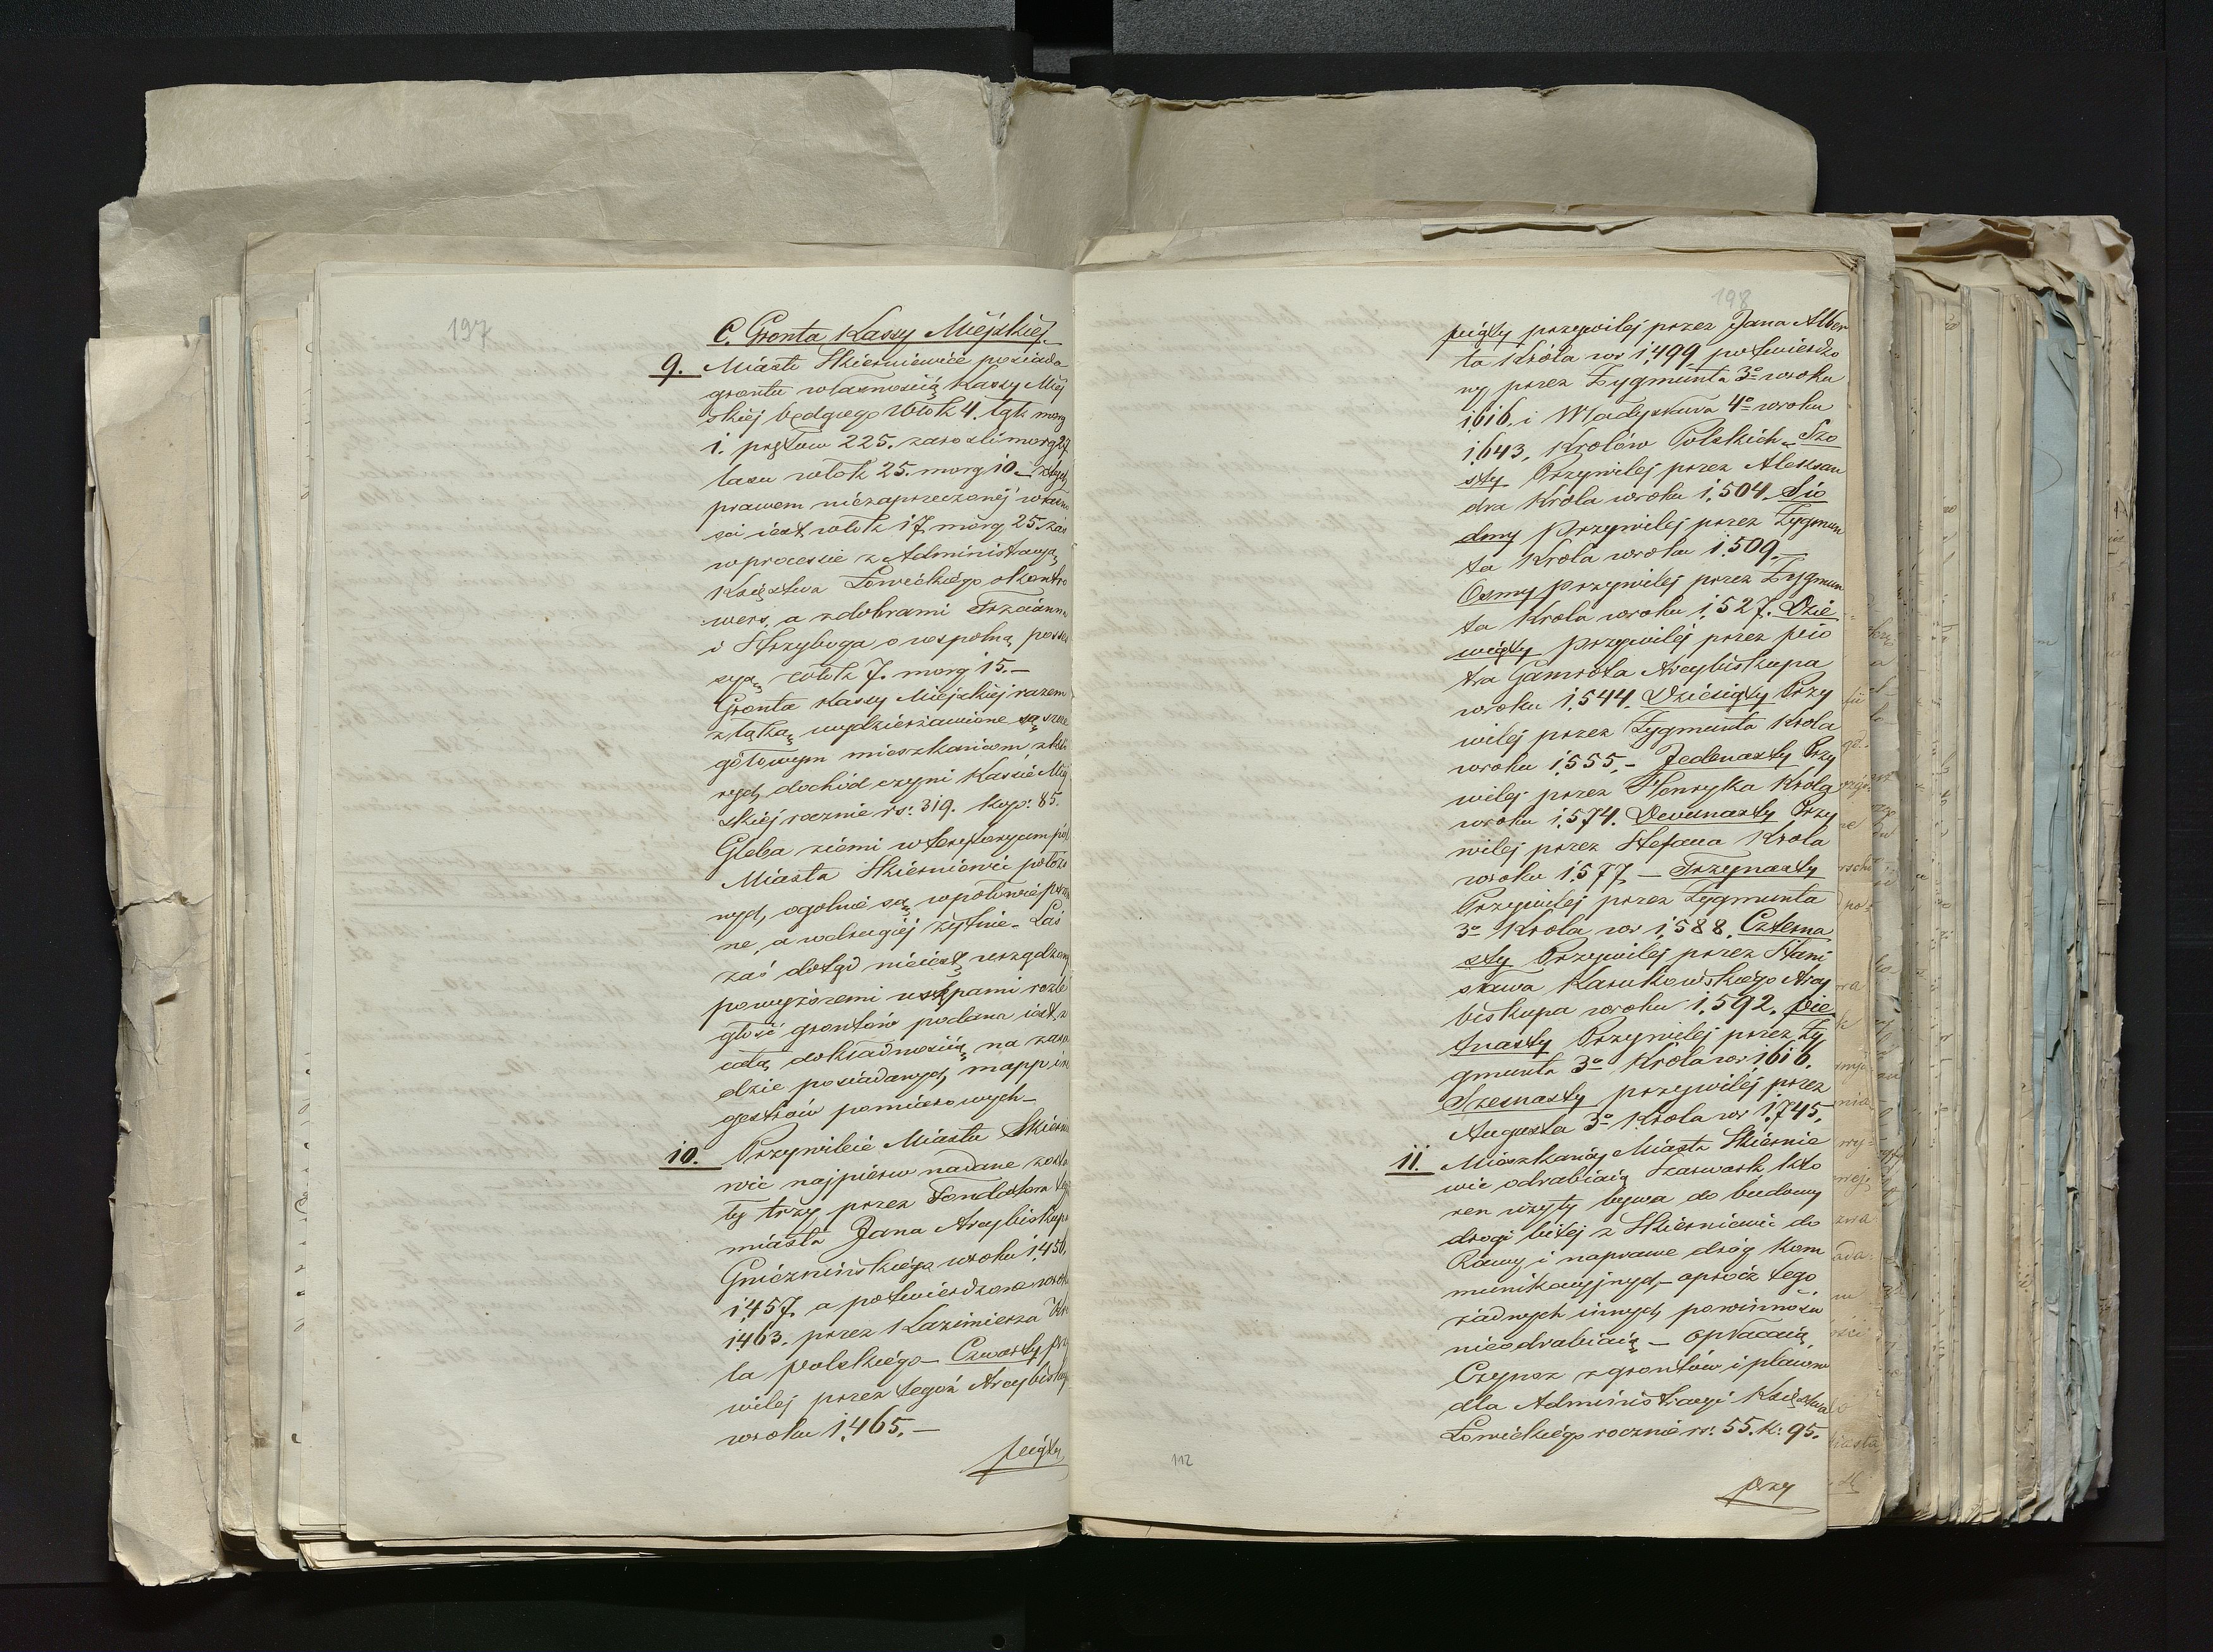 197
C. Gronta Kassy Miejskiej.
9. Miasto Skierniewice posiada
grontu własnością Kassy Miej
skiej będącego Włók 4. łąk morg
1. prętów 225. zarośli morg 27.
lasu włók 25. morg 10 – z tych
prawem niezaprzeczonej własno
sci iest włók 17. morg 25. zaś
wprocesie z Administracyą
Księstwa Łowickiego o kontro
wers, a z dobrami Trzcianna
i Strzyboga o wspolną posses
syą włók 7. morg 15. –
Gronta Kassy Miejskiej razem
z łąką wydzierżawione są szcze
gółowym mieszkańcom z któ
rych dochód czyni Kassie Miej
skiej rocznie rs: 319. kop: 85.
Gleba ziemi w terytoryum pól
Miasta Skierniewic położo
nych, ogolnie są wpołowie pszen
ne, a wdrugiej żytnie – Las
zaś dotąd nieiest urządzony
powyższemi ustępami rozle
głość grontów podana iest z
całą dokładnością na zasa
dzie posiadanych mapp i re
gestrów pomiarowych –
10. Przywileie Miastu Skiernie
wic najpierw nadane zosta
ły trzy przez Fondatora tego
miasta Jana Arcybiskupa
Gnieznińskiego wroku 1456,
1457 a potwierdzone wroku
1463. przez Kazimierza Kró
la Polskiego – Czwarty przy
wilej przez tegoż Arcybiskupa
wroku 1465. –
piąty
198
piąty przywilej przez Jana Alber
ta Króla wr 1499 potwierdzo
ny przez Zygmunta 3º wroku
1616. i Władysława 4º wroku
1643, Królów Polskich – Szo
sty Przywilej przez Aleksan
dra Króla wroku 1504. Sio
dmy Przywilej przez Zygmun
ta Krola wroku 1509. –
Osmy Przywilej przez Zygmun
ta Krola wroku 1527. Dzie
wiąty Przywilej przez Pio
tra Gamrota Arcybiskupa
wroku 1544. Dziesiąty Przy
wilej przez Zygmunta Krola
wroku 1555. – Jedenasty Przy
wilej przez Henryka Króla
wroku 1574. Dwunasty Przy
wilej przez Stefana Krola
wroku 1577 – Trzynasty
Przywilej przez Zygmunta
3º Krola wr 1588. Czterna
sty Przywilej przez Stani
sława Karnkowskiego Arcy
biskupa wroku 1592. Pię
tnasty Przywilej przez Zy
gmunta 3º Króla wr 1616.
Szesnasty przywilej przez
Augusta 3º Krola wr 1745.
11. Mieszkańcy Miasta Skiernie
wic odrabiaią szarwark któ
ren użyty bywa do budowy
drogi bitej z Skierniewic do
Rawy i naprawe dróg kom
munikacyjnych – oprócz tego
żadnych innych powinności
nieodrabiaią – opłacaią
Czynsz z grontów i placów
dla Administracyi Księstwa
Łowickiego rocznie rs: 55. k: 95.
przy
112